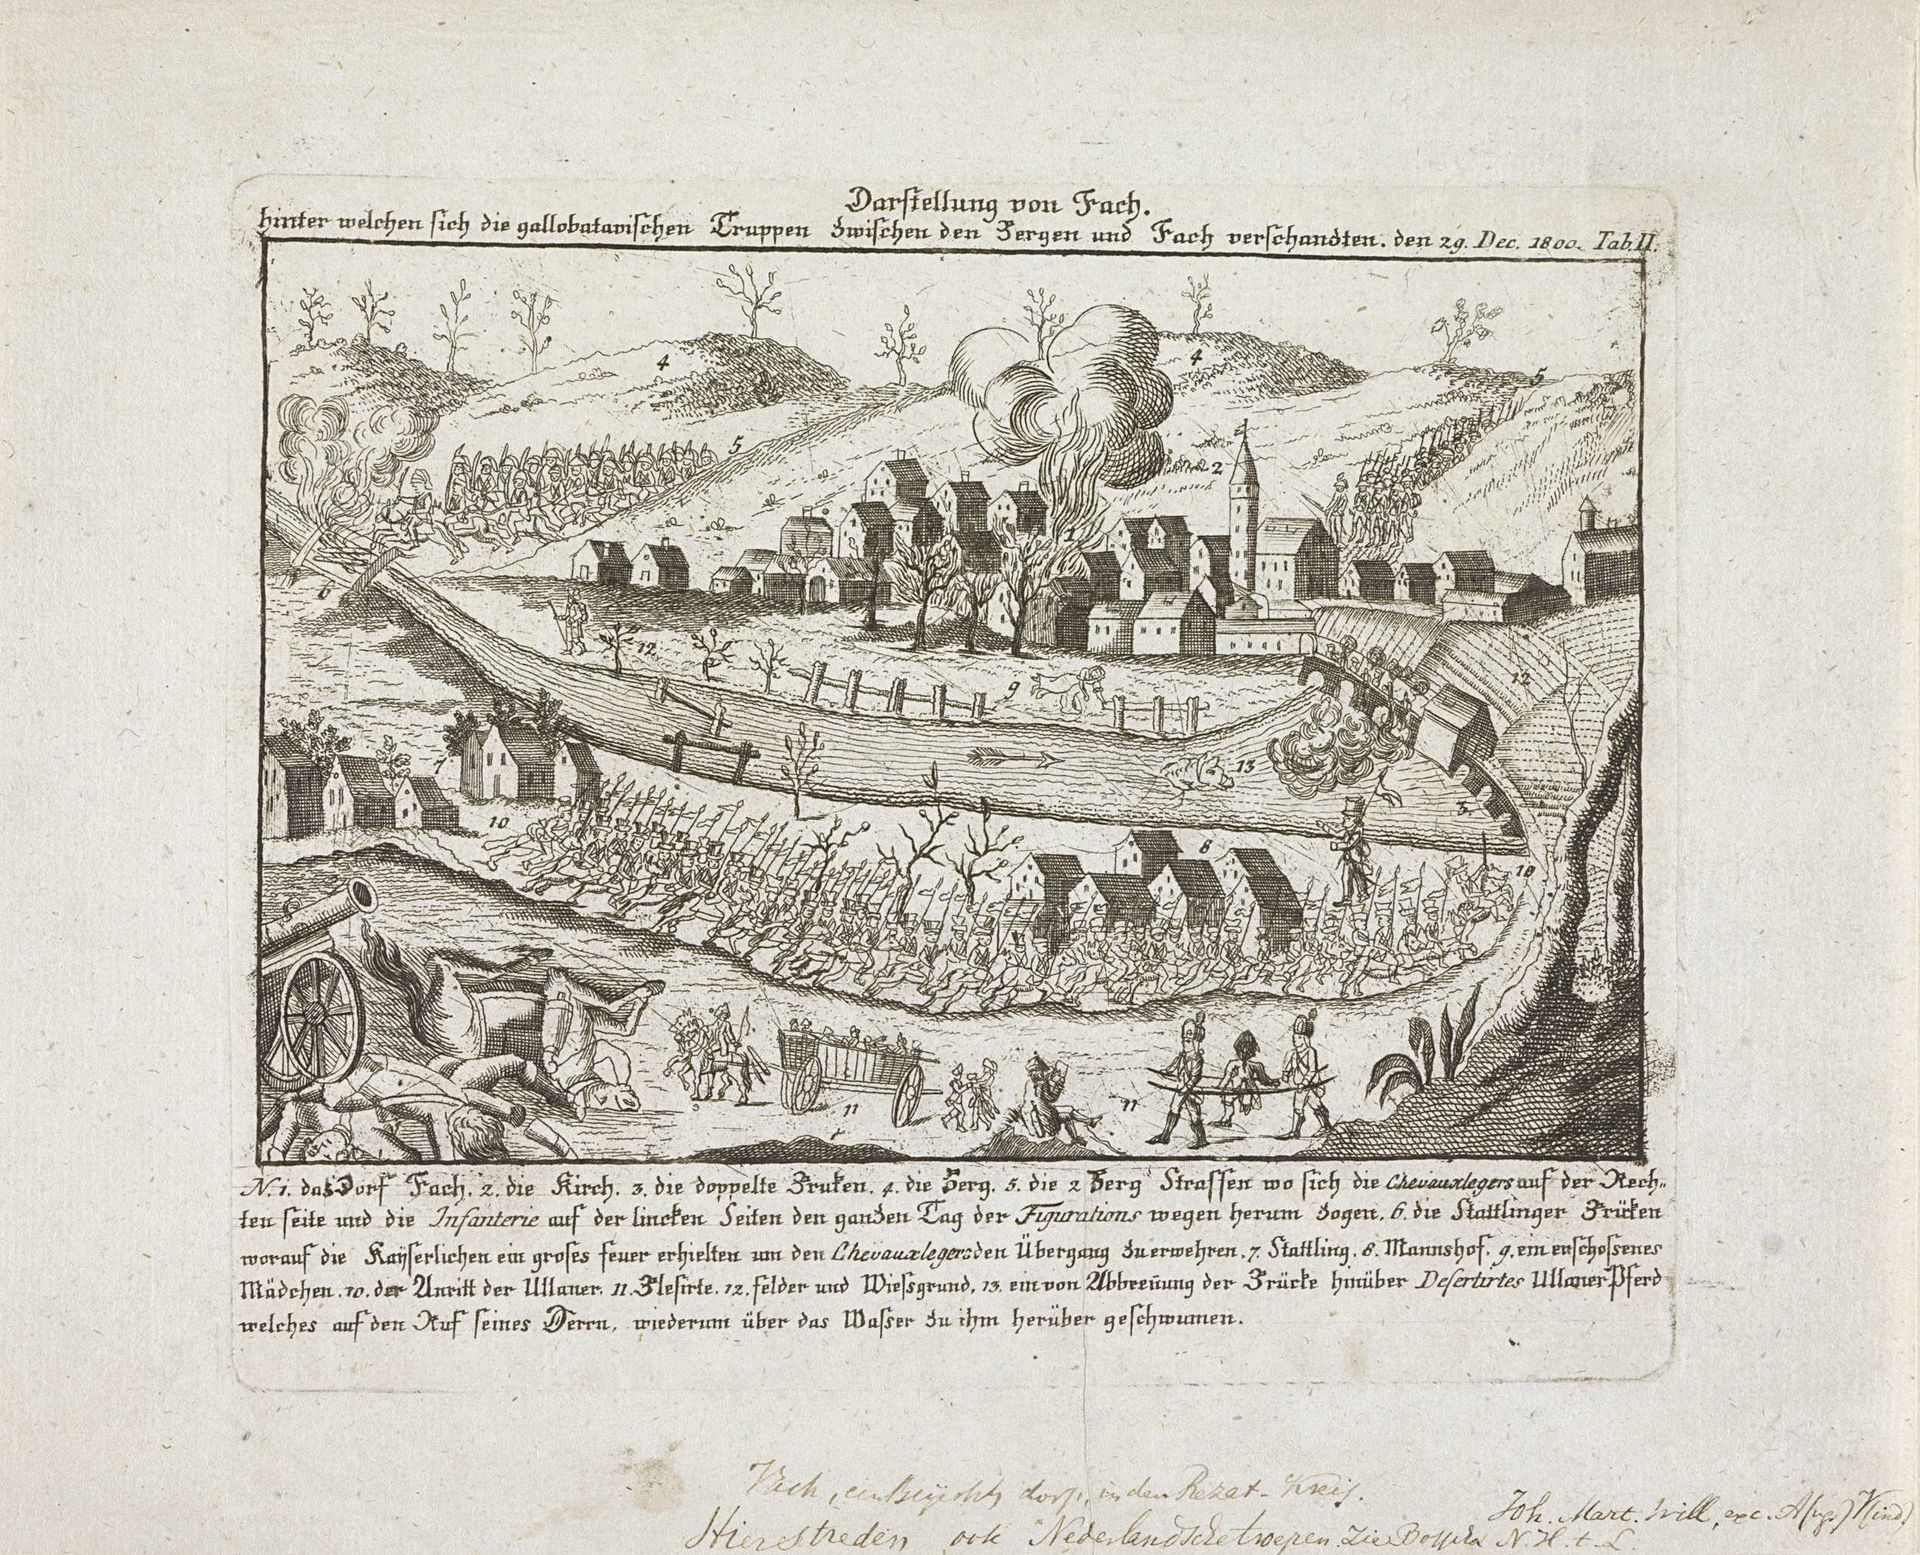 Darstellung von Fach.
hinter welchen sich die gallobatavischen Truppen zwischen den Bergen und Fach verschanzten. den 29. Dec. 1800. Tab. II.
4
4
5
5
2
1
6
12
9
12
13
7
3.
10
8
10
11
11
N. 1. das Dorf Fach. 2. die Kirch. 3. die doppelte Bruken. 4. die Berg. 5. die 2 Berg Strassen wo sich die Chevauxlegers auf der Rech-
ten seite und die Infanterie auf der lincken Seiten den ganzen Tag der Figurations wegen herum zogen. 6. die Stattlinger Brüken
worauf die Kayserlichen ein groses feuer erhielten um den Chevauxlegers den Übergang zu erwehren. 7. Stattling. 8. Mannshof. 9. ein erschossenes
Mädchen. 10. der Anritt der Ullaner. 11. Blesirte. 12. felder und Wiessgrund. 13. ein von Abbrenung der Brücke hinüber Desertirtes Ullaner Pferd
welches auf den Ruf seines Herrn, wiederum über das Wasser zu ihm herüber geschwumen.
Vach, ein dorf, in den Rezat-Kreis.
Joh. Mart. Will, exc. A[ugs.] V[ind.]
Hier streden ook Nederlandsche troepen. Zie Bosscha N. H. t. L.